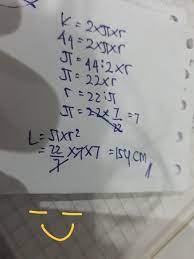 K = 2xπxr
44 = 2xπxr
π = 44:2xr
π = 22xr
r = 22:π
π = 22x7/22 = 7
L = πxr²
= 22/7 x7x7 = 154 cm